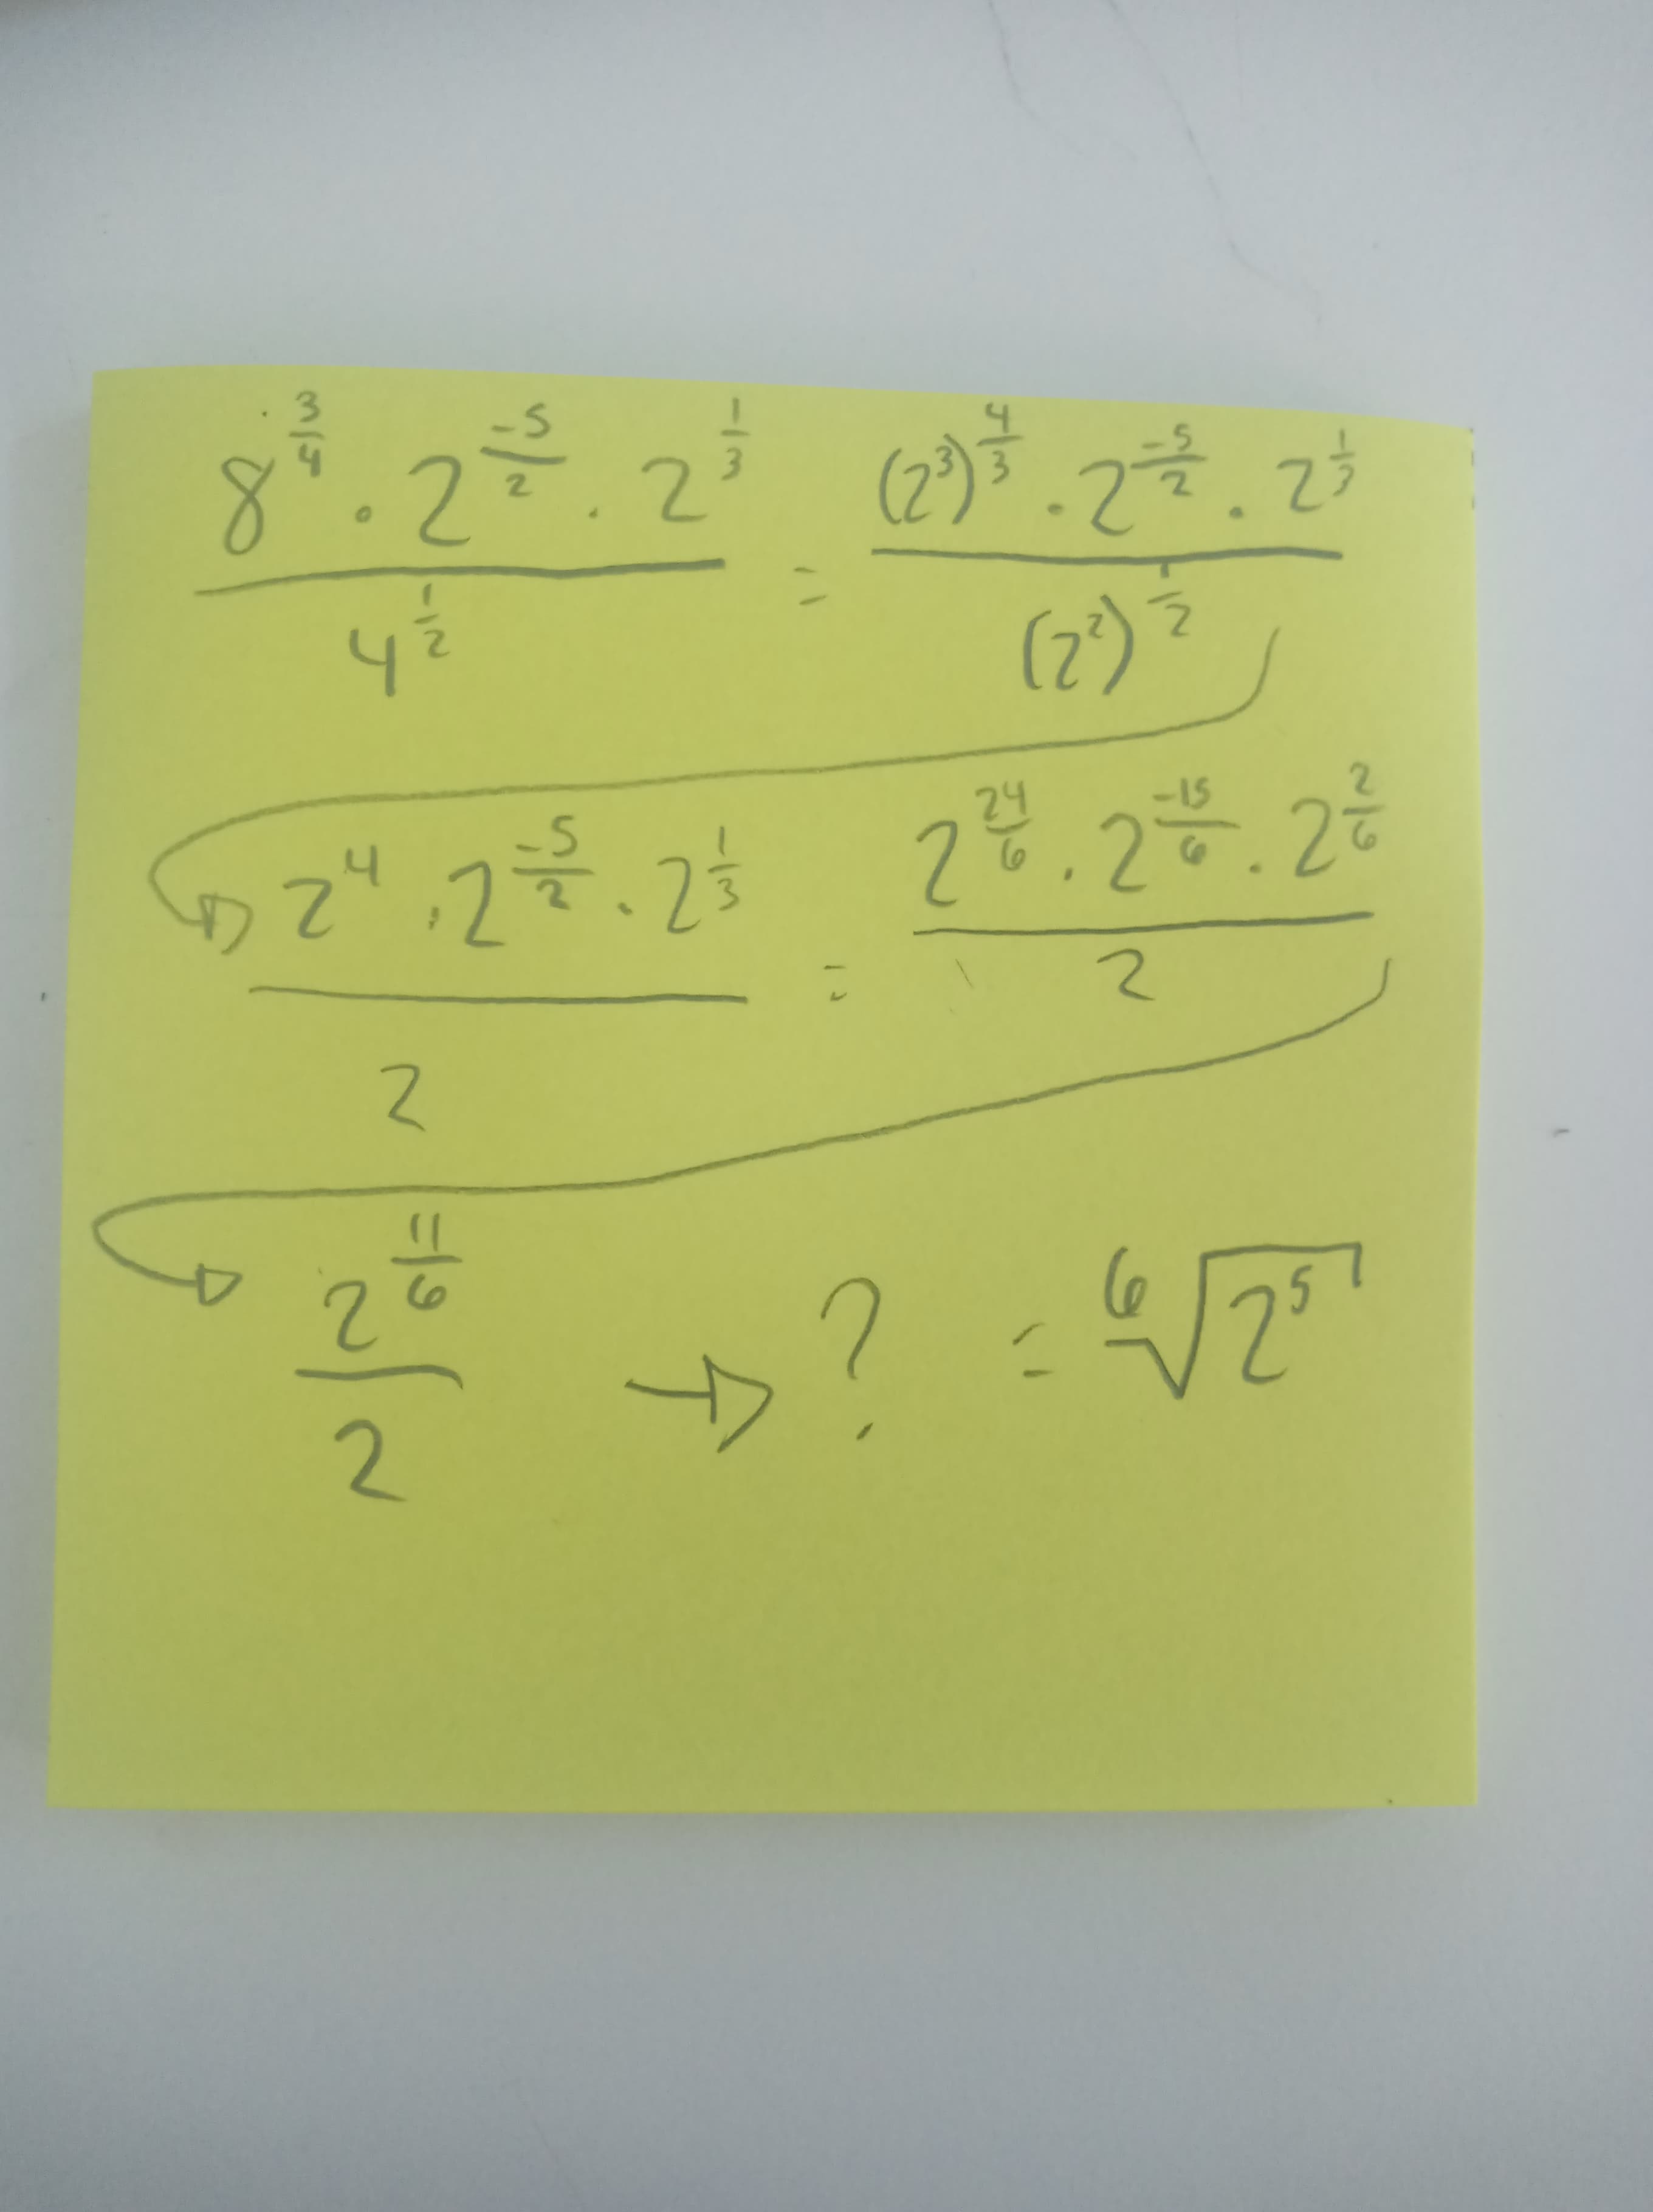 8^(3/4) · 2^(-5/2) · 2^(1/3) / 4^(1/2) = (2^3)^(4/3) · 2^(-5/2) · 2^(1/3) / (2^2)^(1/2)
→ 2^4 · 2^(-5/2) · 2^(1/3) / 2 = 2^(24/6) · 2^(-15/6) · 2^(2/6) / 2
→ 2^(11/6) / 2 → ? = ⁶√(2^5)